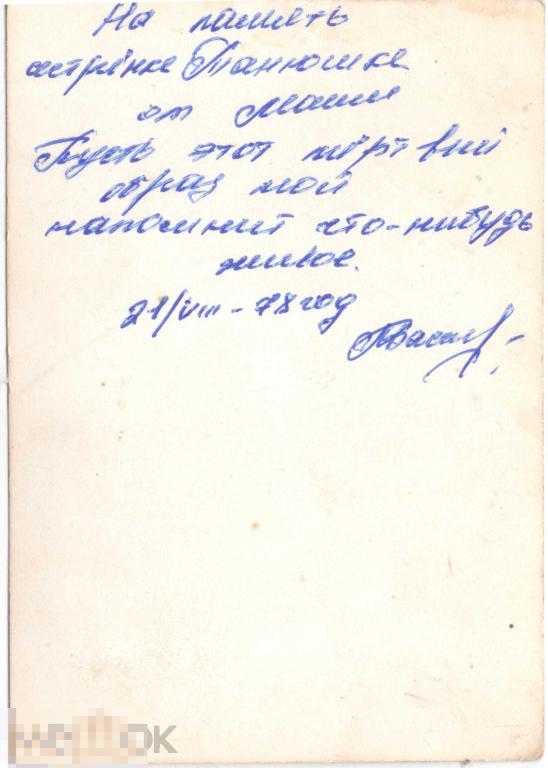 На память
сестрёнке Танюшке
от Маши
Пусть этот мёртвый
образ мой
напомнит что-нибудь
живое.
21/VIII - 78 год